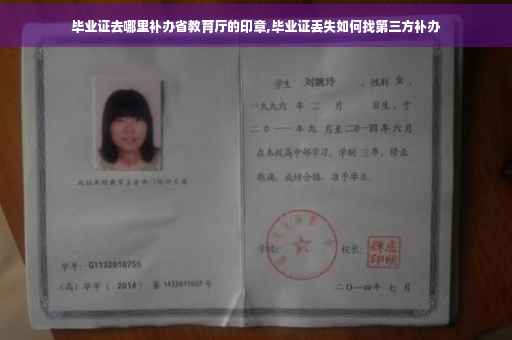 毕业证去哪里补办省教育厅的印章,毕业证丢失如何找第三方补办
学生 刘婉玲 ,性别 女 ,
一九九六 年 二 月 日生,于
二〇一一年九 月至二〇一四年 六 月
在本校高中部学习,学制 三年,修业
期满,成绩合格,准予毕业。
学校: 校长:
学号: G1132010755
(高)毕字( 2014 )第 1432011027 号
二〇一四年 七 月